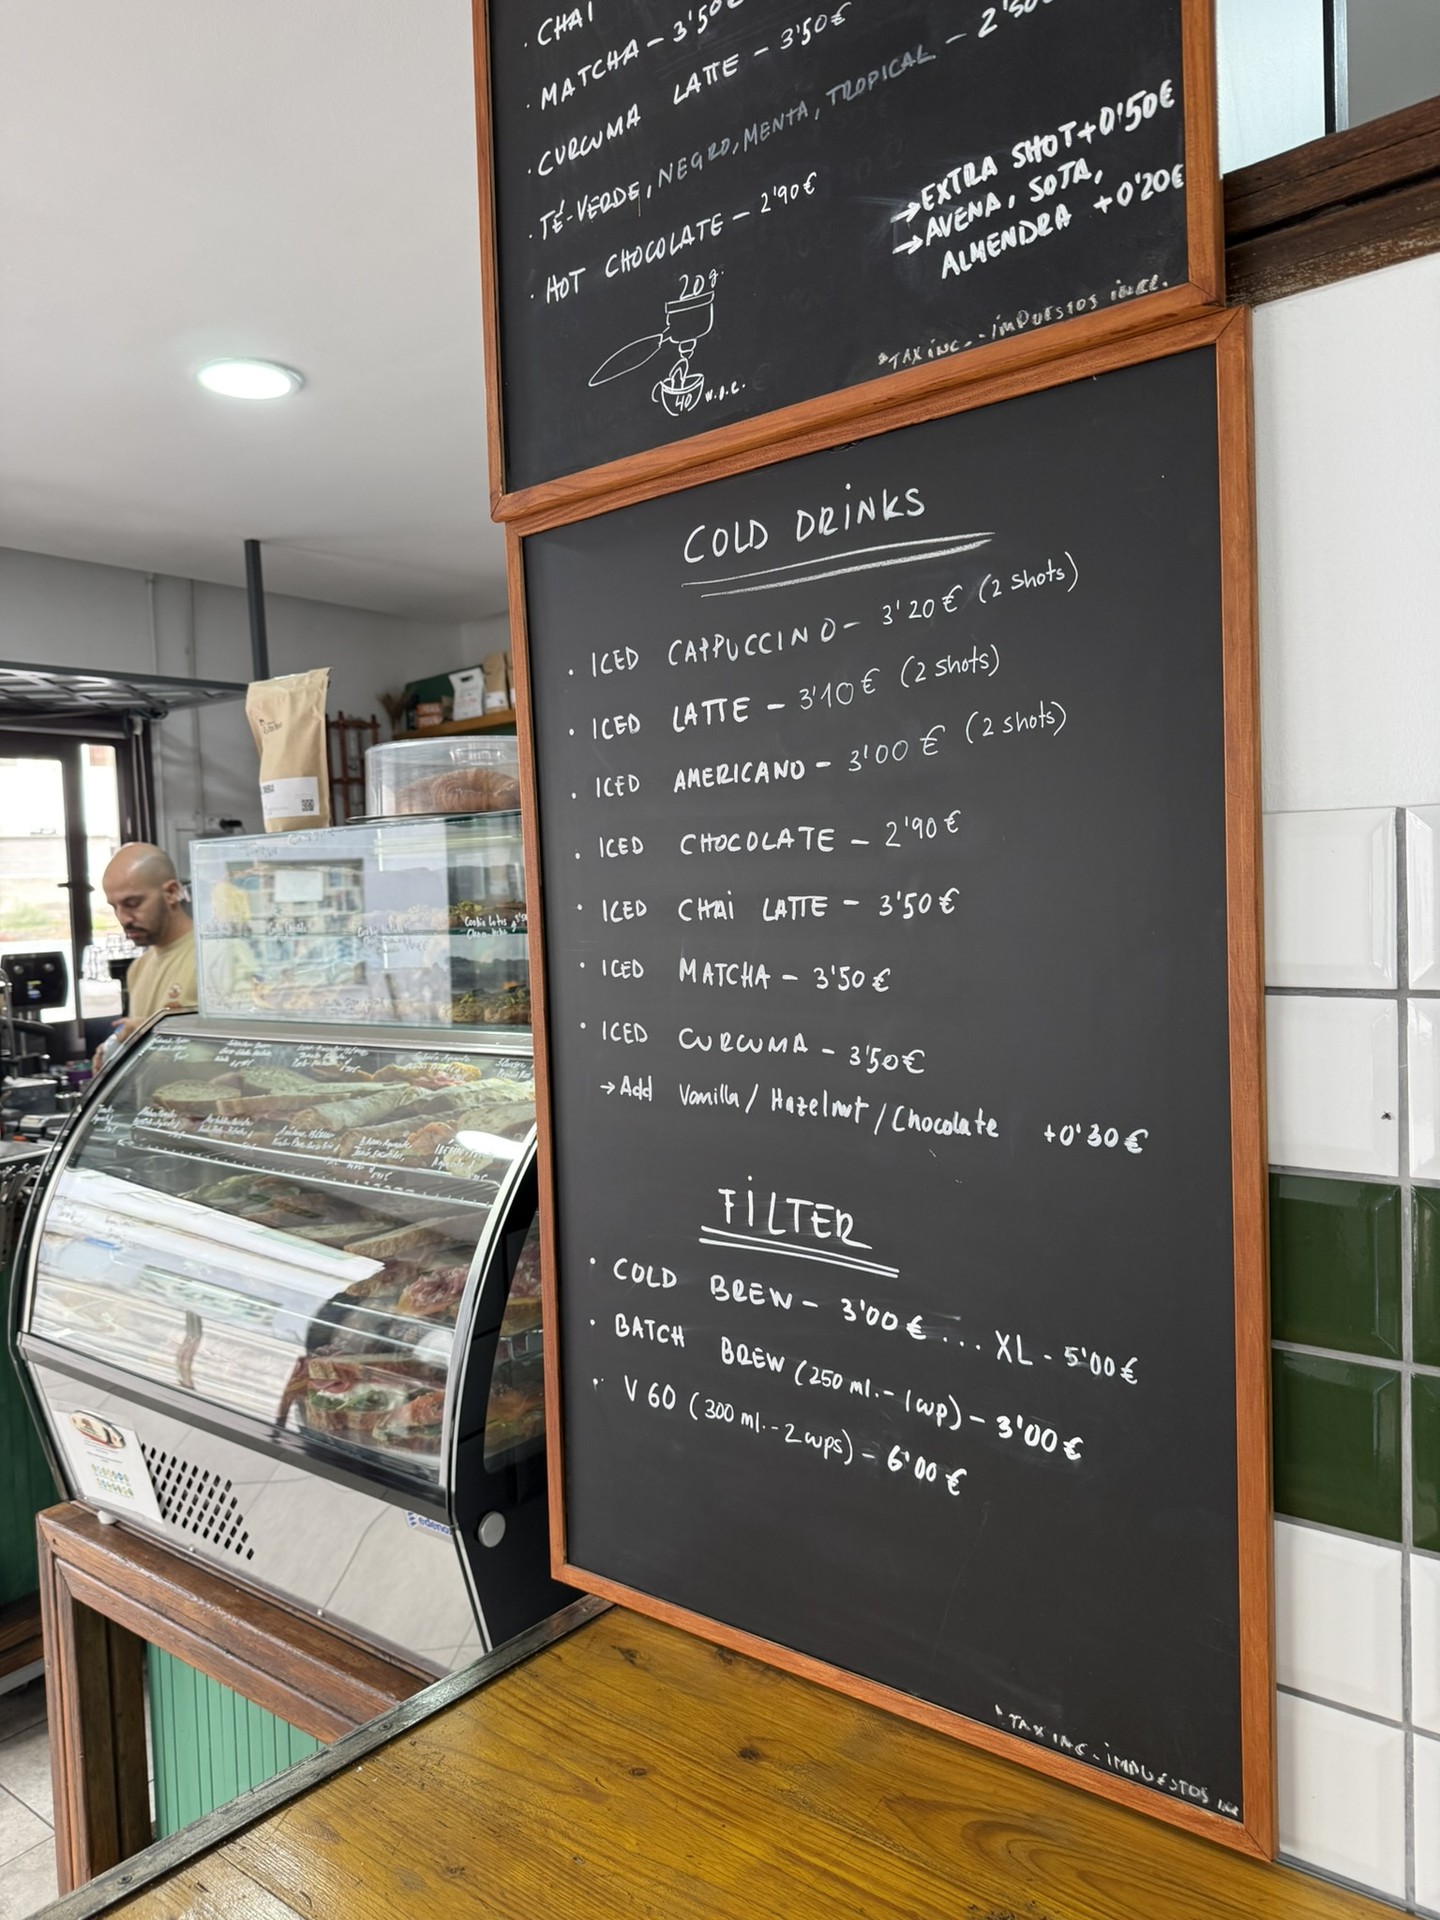 · CHAI
· MATCHA – 3'50€
· CURCUMA LATTE – 3'50€
· TÉ-VERDE, NEGRO, MENTA, TROPICAL – 2'50
· HOT CHOCOLATE – 2'90€
→ EXTRA SHOT +0'50€
→ AVENA, SOTA,
ALMENDRA +0'20€
20g.
40
*TAX INC. - IMPUESTOS INCL.
COLD DRINKS
· ICED CAPPUCCINO – 3'20€ (2 shots)
· ICED LATTE – 3'10€ (2 shots)
· ICED AMERICANO – 3'00€ (2 shots)
· ICED CHOCOLATE – 2'90€
· ICED CHAI LATTE – 3'50€
· ICED MATCHA – 3'50€
· ICED CURCUMA – 3'50€
→ Add Vanilla / Hazelnut / Chocolate +0'30€
FILTER
· COLD BREW – 3'00€ ... XL - 5'00€
· BATCH BREW (250 ml. - 1 cup) – 3'00€
· V60 (300 ml. - 2 cups) – 6'00€
* TAX INC - IMPUESTOS